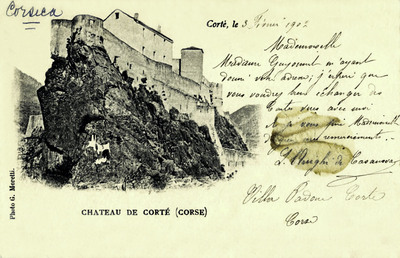 Corsica
Corté, le 3 Février 1902
Mademoiselle
Madame Guyounet en ayant
donné votre adresse, j'espère que
vous voudrez bien échanger des
cartes vues avec moi
je vous prie Mademoiselle
mes remerciements.
de Casanova
Villa Padoue Corte
Corse
CHATEAU DE CORTÉ (CORSE)
Photo G. Moretti.